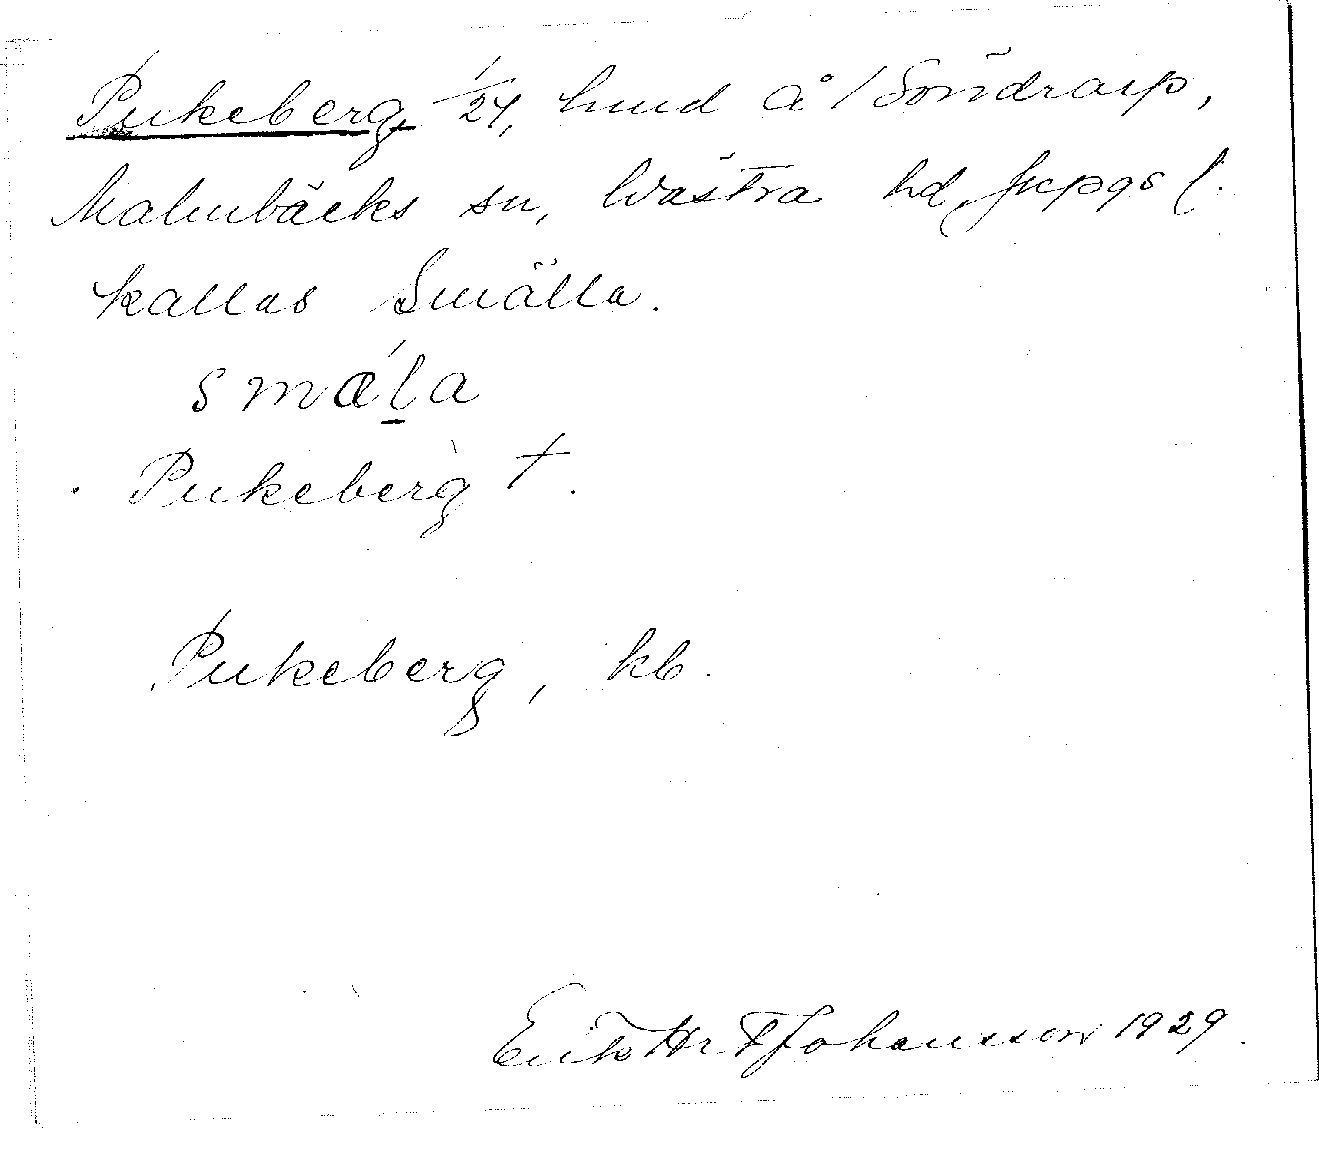 Pukeberg, 1/24, hmd å 1 Söndrarp,
Malmbäcks sn, Västra hd, Jkpgs l.
kallas Smälla.
smæla
Pukeberg †.
Pukeberg, kb.
Johansson 1929.